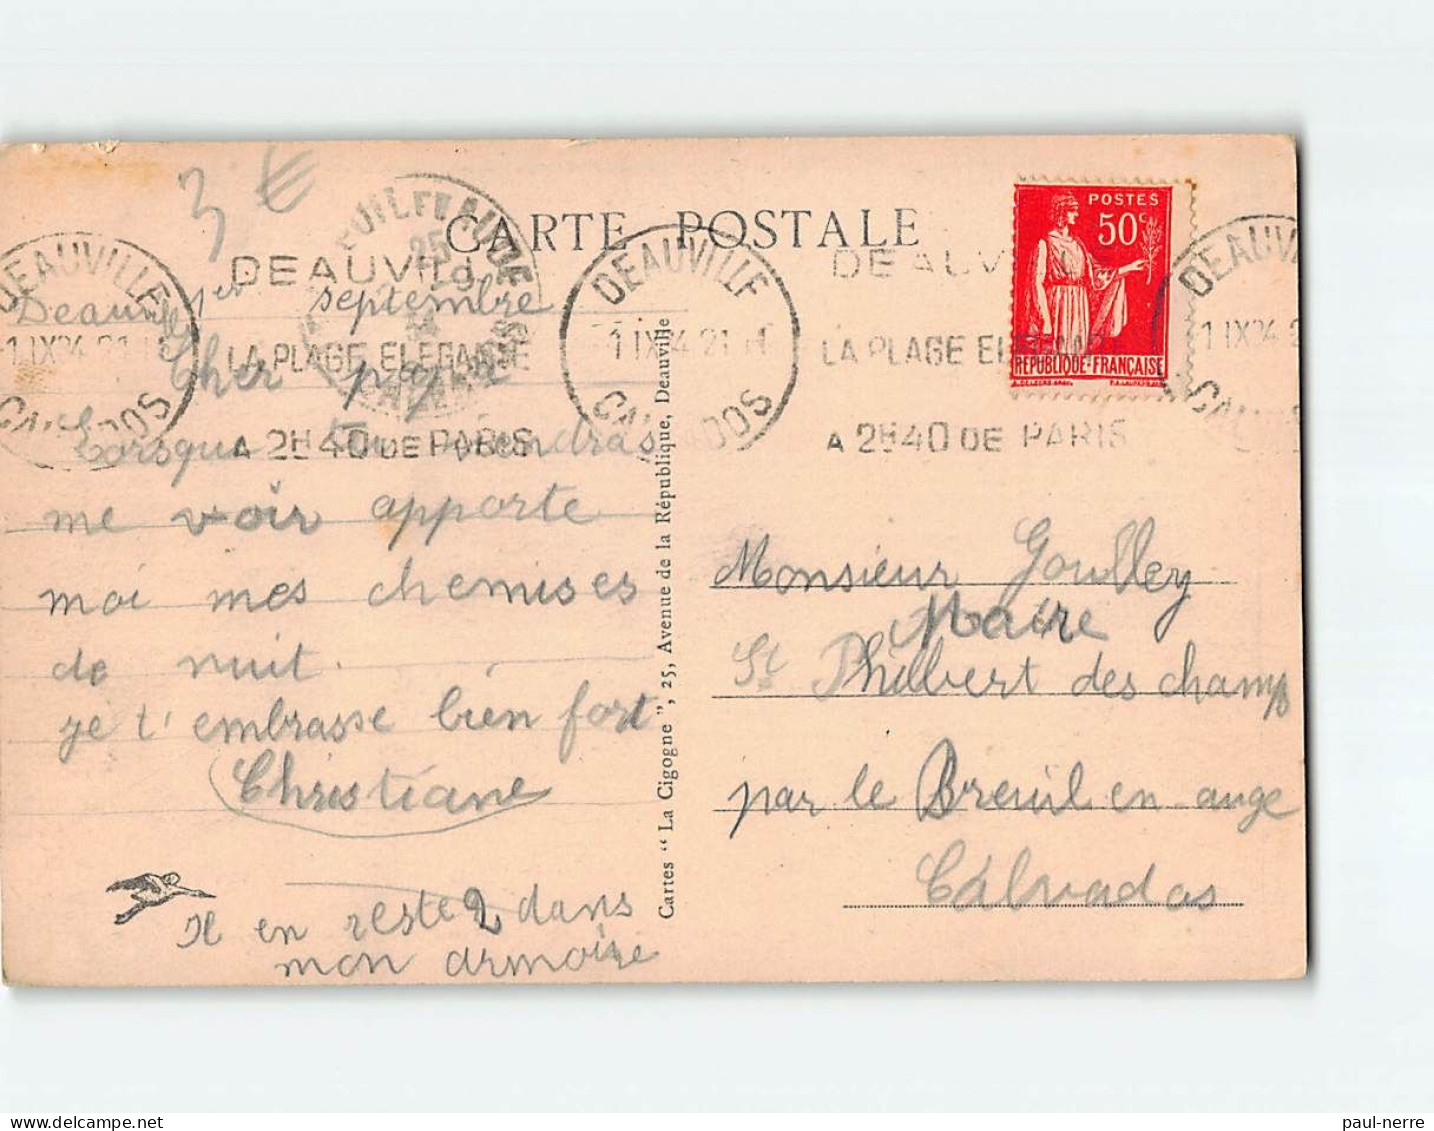 3 €
CARTE POSTALE
DEAUVILLE
1 IX 34 21
CALVADOS
DEAUVILLE
LA PLAGE ELEGANTE
A 2H40 DE PARIS
DEAUVILLE
1 IX 34 21
CALVADOS
DEAUVILLE
LA PLAGE ELEGANTE
A 2H40 DE PARIS
DEAUVILLE
1 IX 34 2
POSTES
50c
REPUBLIQUE-FRANÇAISE
Deauville 1er septembre
Cher papa
Lorsque tu viendras
me voir apporte
moi mes chemises
de nuit.
je t'embrasse bien fort
Christiane
Il en reste 2 dans
mon armoire
Cartes “ La Cigogne ”, 25, Avenue de la République, Deauville
Monsieur Goulley
Maire
St Philbert des champs
par le Breuil en auge
Calvados
paul-nerre